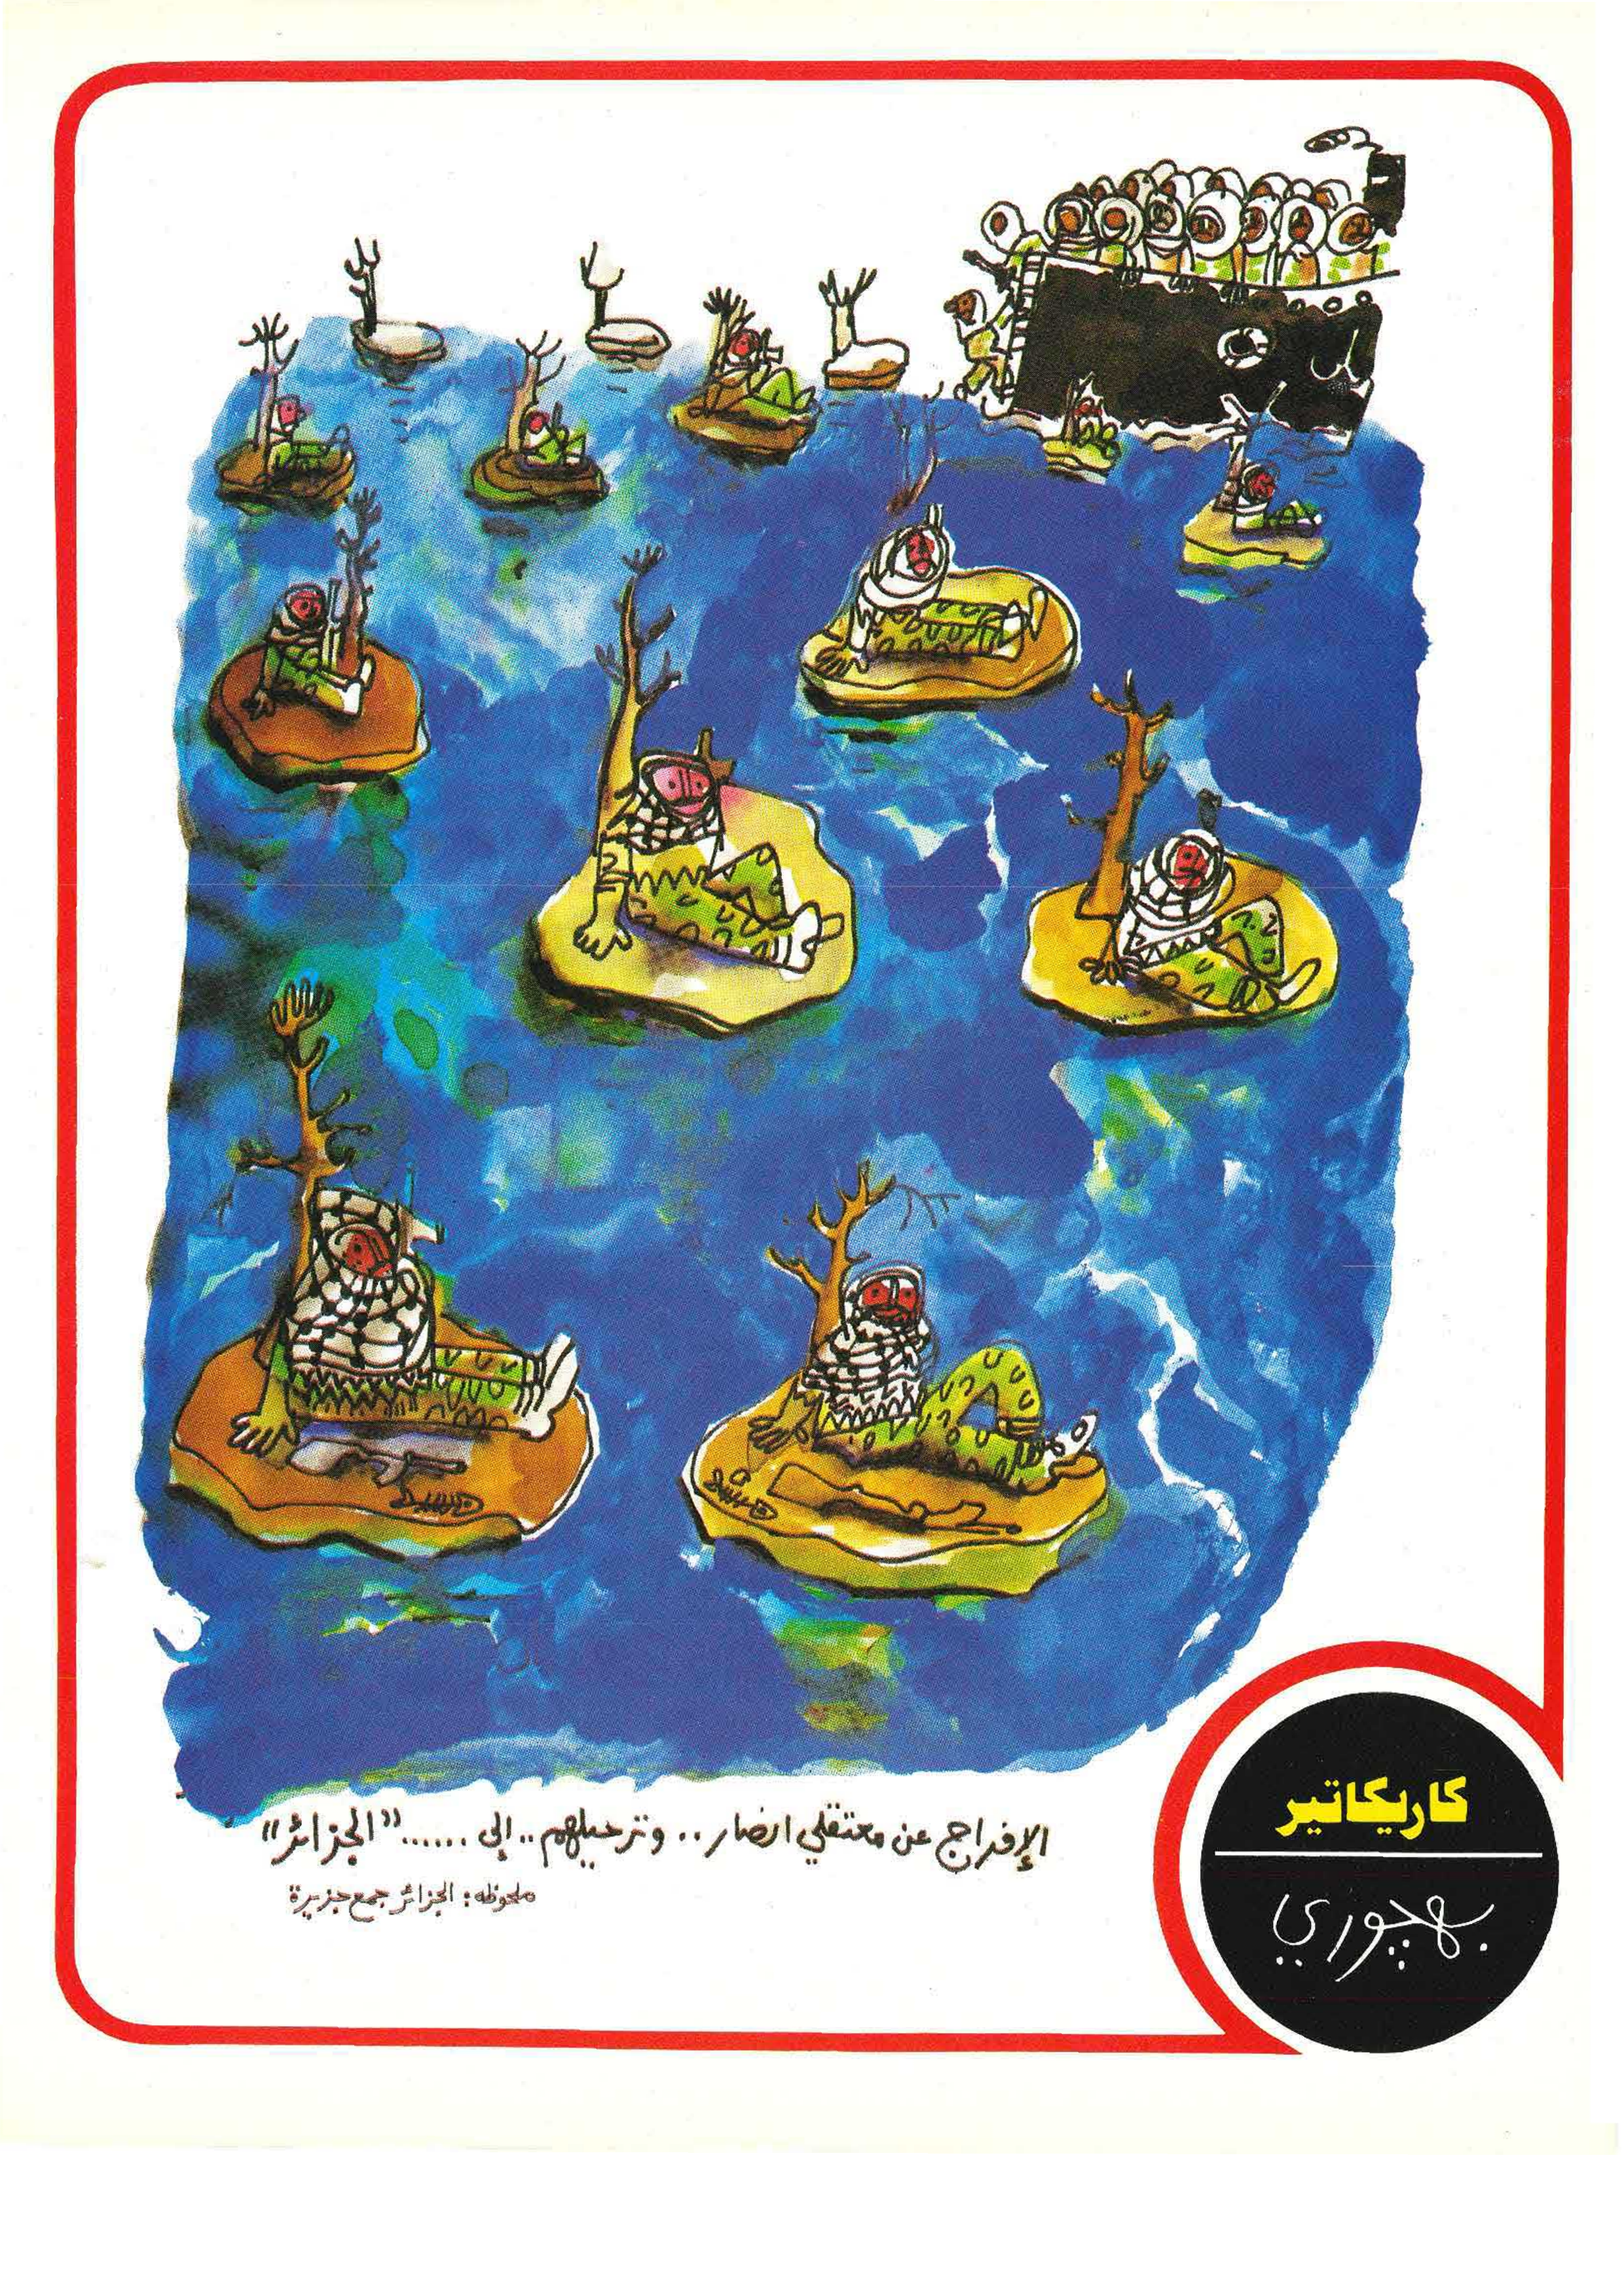 الإفراج عن معتقلي انصار .. وترحيلهم .. إلى ...... "الجزائر"
ملحوظه : الجزائر جمع جزيرة
كاريكاتير
بهجوري